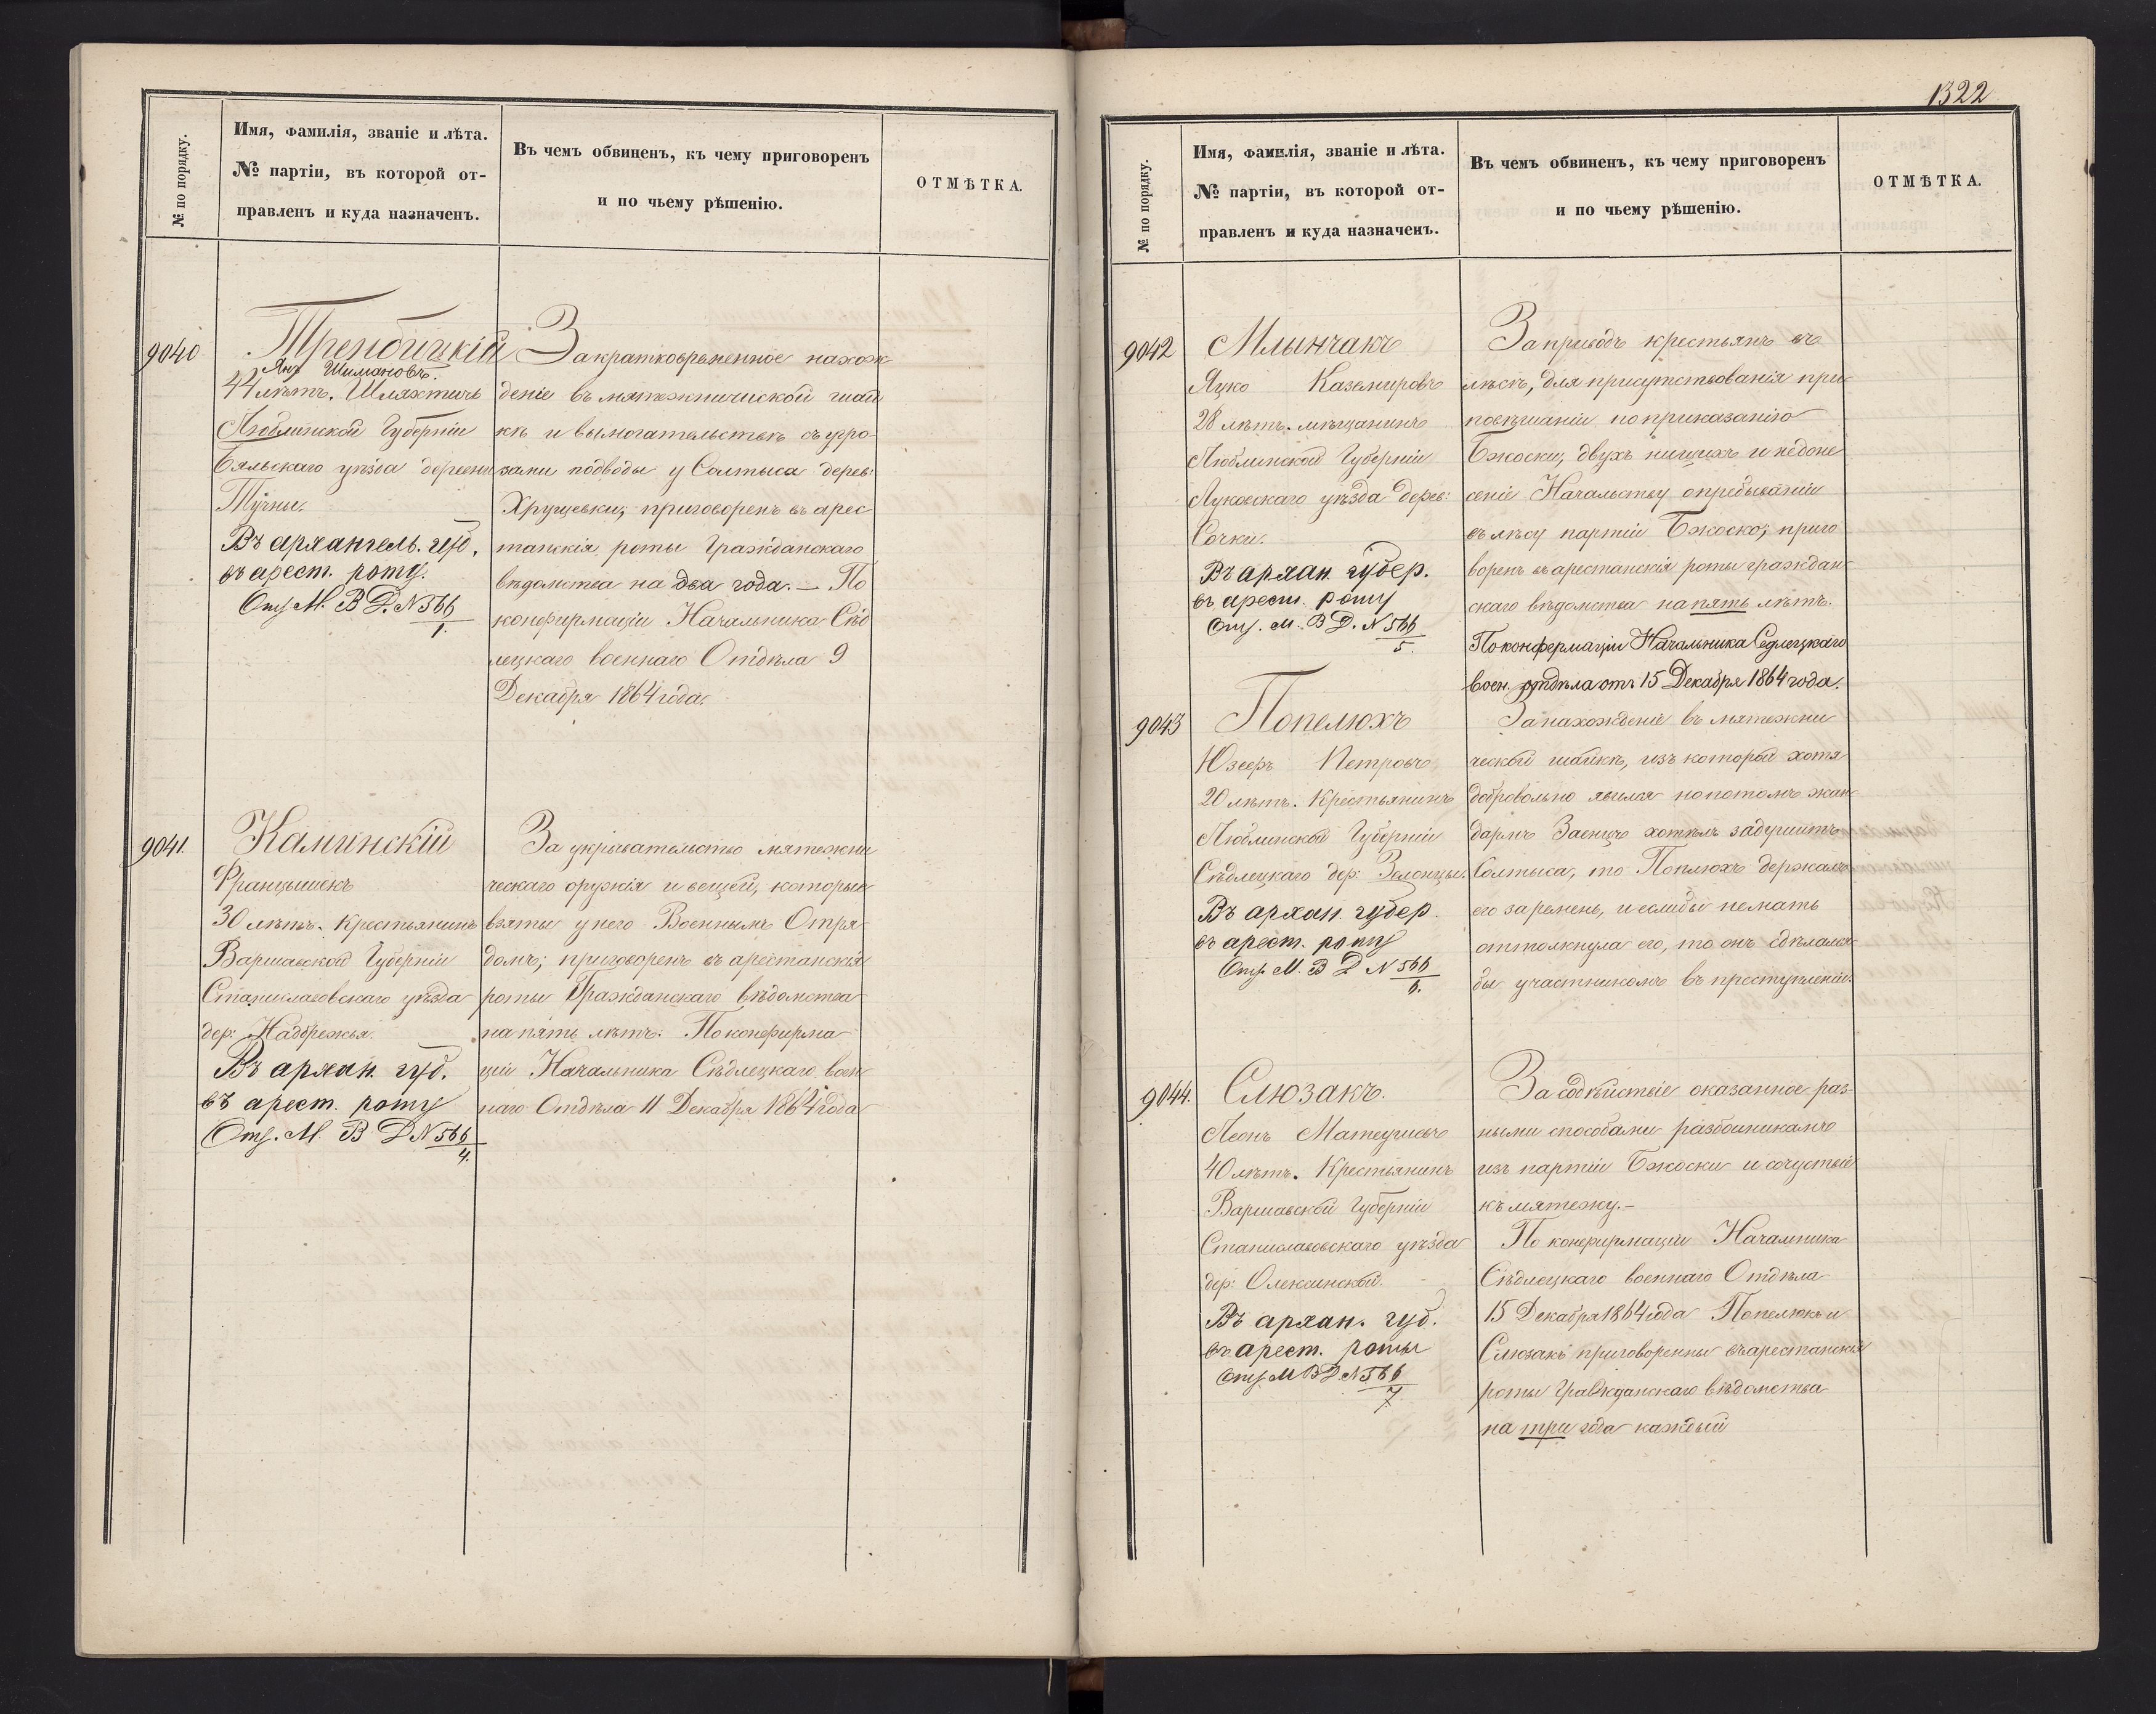 № по порядку.
Имя, фамилія, званіе и лѣта.
№ партіи, въ которой от-
правленъ и куда назначенъ.
Въ чемъ обвиненъ, къ чему приговоренъ
и по чьему рѣшенію.
ОТМѢТКА.
9040
Тренбицкій
Янъ Шимановъ.
44 лѣтъ. Шляхтичь
Люблинской Губерніи
Бяльскаго уѣзда деревни
Тучны.
Въ архангель. губ.
въ арест. роту.
Отз. М. В Д. N 566
1.
За кратковременное нахож-
деніе въ мятежнической шай
кѣ и вымогательствѣ съ угро-
зами подводы у Солтыса дерев:
Хрущевки; приговоренъ въ арес
танскія роты Гражданскаго
вѣдомства на два года. — По
конфирмаціи Начальника Сѣд
лецкаго военнаго Отдѣла 9
Декабря 1864 года.
9041.
Каминскій
Францышекъ
30 лѣтъ. Крестьянинъ
Варшавской Губерніи
Станиславовскаго уѣзда
дер: Надбрежья.
Въ архан. губ.
въ арест. роту
Отз. М. В Д N 566
4.
За укрывательство мятежни
ческаго оружія и вещей, которыя
взяты у него Военнымъ Отря-
домъ; приговоренъ въ арестанскія
роты Гражданскаго вѣдомства
на пять лѣтъ. По конфирма
ціи Начальника Сѣдлецкаго воен
наго Отдѣла 11 Декабря 1864 года
1322
№ по порядку.
Имя, фамилія, званіе и лѣта.
№ партіи, въ которой от-
правленъ и куда назначенъ.
Въ чемъ обвиненъ, къ чему приговоренъ
и по чьему рѣшенію.
ОТМѢТКА.
9042
Млынчакъ
Яцко Каземировъ
28 лѣтъ. мѣщанинъ
Люблинской Губерніи
Луковскаго уѣзда дерев:
Сочки.
Въ архан. губер.
въ арест. роту
Отз. М. В Д. N 566
5.
За приводъ крестьянъ въ
лѣсъ, для присутствованія при
повѣшаніи по приказанію
Бжоски, двухъ нищихъ и недоне
сеніе Начальству опребываніи
въ лѣсу партіи Бжоско; приго
воренъ въ арестанскія роты граждан
скаго вѣдомства на пять лѣтъ.
По конфермаціи Начальника Седлецкаго
воен. отдѣла отъ 15 Декабря 1864 года.
9043
Попелюхъ
Юзефъ Петровъ
20 лѣтъ. Крестьянинъ
Люблинской Губерніи
Сѣдлецкаго дер: Зелонцы.
Въ архан. губер.
въ арест. роту
Отз. М. В Д N 566
6.
За нахожденіе въ мятежни
ческой шайкѣ, изъ которой хотя
добровольно явился но потомъ жан
дармъ Заенцъ хотѣлъ задушить
Солтыса, то Поплюхъ держалъ
его за ремень, и еслибы не мать
оттолкнула его, то онъ сдѣлался
бы участникомъ въ преступленіи.
9044.
Слюзакъ.
Леонъ Матеушовъ
40 лѣтъ. Крестьянинъ
Варшавской Губерніи
Станиславовскаго уѣзда
дер: Олексинской.
Въ архан. губ.
въ арест. роты
Отз. М В Д. N 566
7
За содѣйствіе оказанное раз-
ными способами разбойникамъ
изъ партіи Бжоски и сочуствіе
къ мятежу.—
По конфирмаціи Начальника
Сѣдлецкаго военнаго Отдѣла
15 Декабря 1864 года Попелюкъ и
Слюзакъ приговоренны въ арестанскія
роты Гражданскаго вѣдомства
на три года каждый